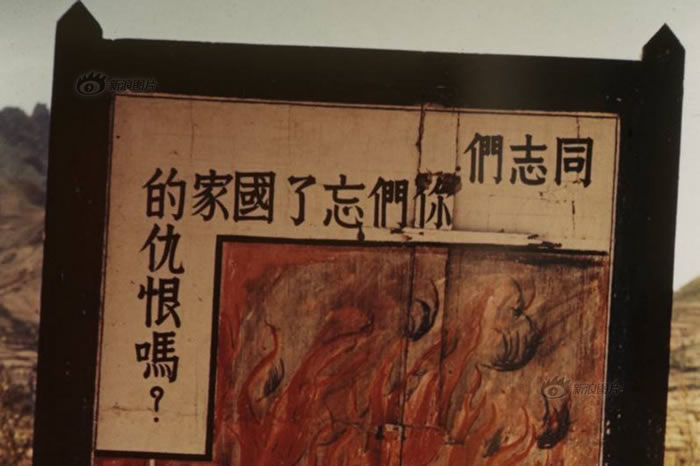 同志們
你們忘了國家
的仇恨嗎？
新浪图片
新浪图片